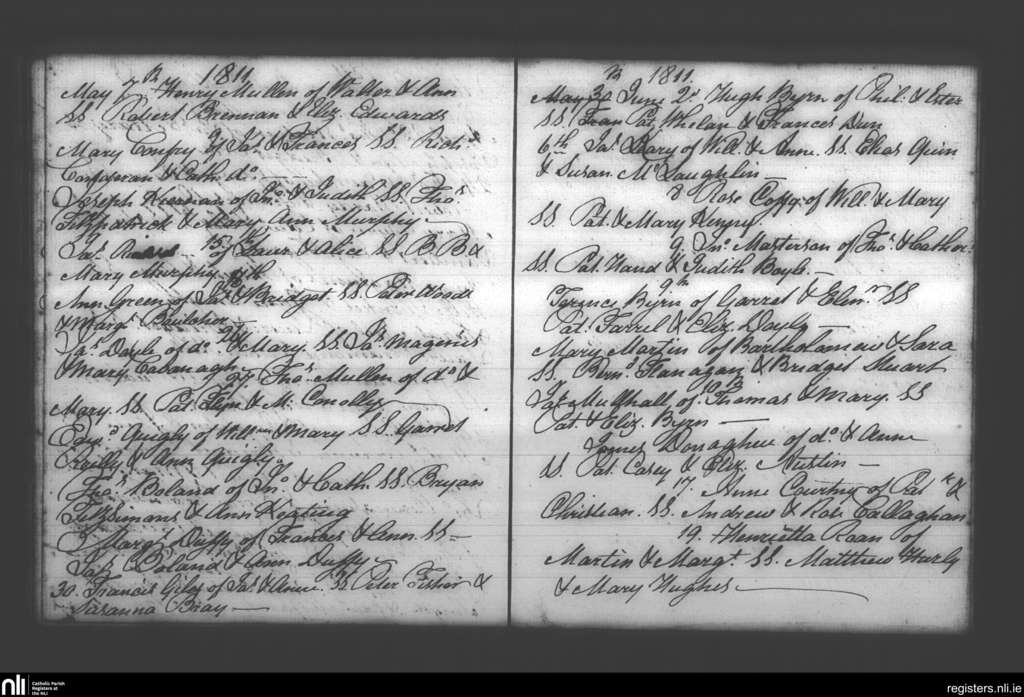 1811
May 7th Henry Mullen of Walter & Ann
SS Robert Brennan & Eliz. Edwards
9
Mary Conpry of Jas. & Frances SS Richd.
Corcoran & Cath. do.
Joseph Kiernan of Jno. & Judith SS Thos.
Fitzpatrick & Mary Ann Murphy
15
Jas. of Laur & Alice SS B B &
Mary Murphy
Ann Green of Jas. & Bridget SS Peter Wood
& Margt.
Jas. Doyle of do. & Mary SS Jas. Magenis
& Mary Cavanagh
27 Thos. Mullen of do. &
Mary. SS Pat. Flyn & M. Conolly
Edwd. Quigly of Willm. & Mary SS Garret
Reilly & Ann Quigly
Thos. Boland of Jno. & Cath. SS. Bryan
Fitzsimons & Ann Keating
Margt. Duffy of Frances & Ann. SS
Jas. Boland & Ann Duffy
30. Francis Giles of Jas. & Anne. SS Peter Fisher &
Susanna Bray
1811.
May 30 June 2d. Hugh Byrn of Phil. & Ester
SS Fran Pat Whelan & Frances Dun
6th Jas. Leary of Will. & Anne. SS. Elias Quin
& Susan McLaughlin
8 Rose of Will & Mary
SS Pat & Mary
9. Jno. Masterson of Thos. & Cathne.
SS. Pat. Hand & Judith Boyle
9th
Terence Byrn of Garret & Elinr. SS
Pat. Farrel & Eliz. Doyle
Mary Martin of Bartholomew & Sara
SS Bernd. Flanagan & Bridget Stuart
10th
Jas. Mulhall of Thomas & Mary. SS
Pat. & Eliz. Byrn
James Donaghue of do. & Anne
SS Pat. Casey & Eliz. Austin
17. Anne Courtny of Patk. &
Christian. SS. Andrew & Rob. Callaghan
19. Henrietta Roan of
Martin & Margt. SS. Matthew Hurly
& Mary Hughes
nli
Catholic Parish
Registers at
the NLI
registers.nli.ie